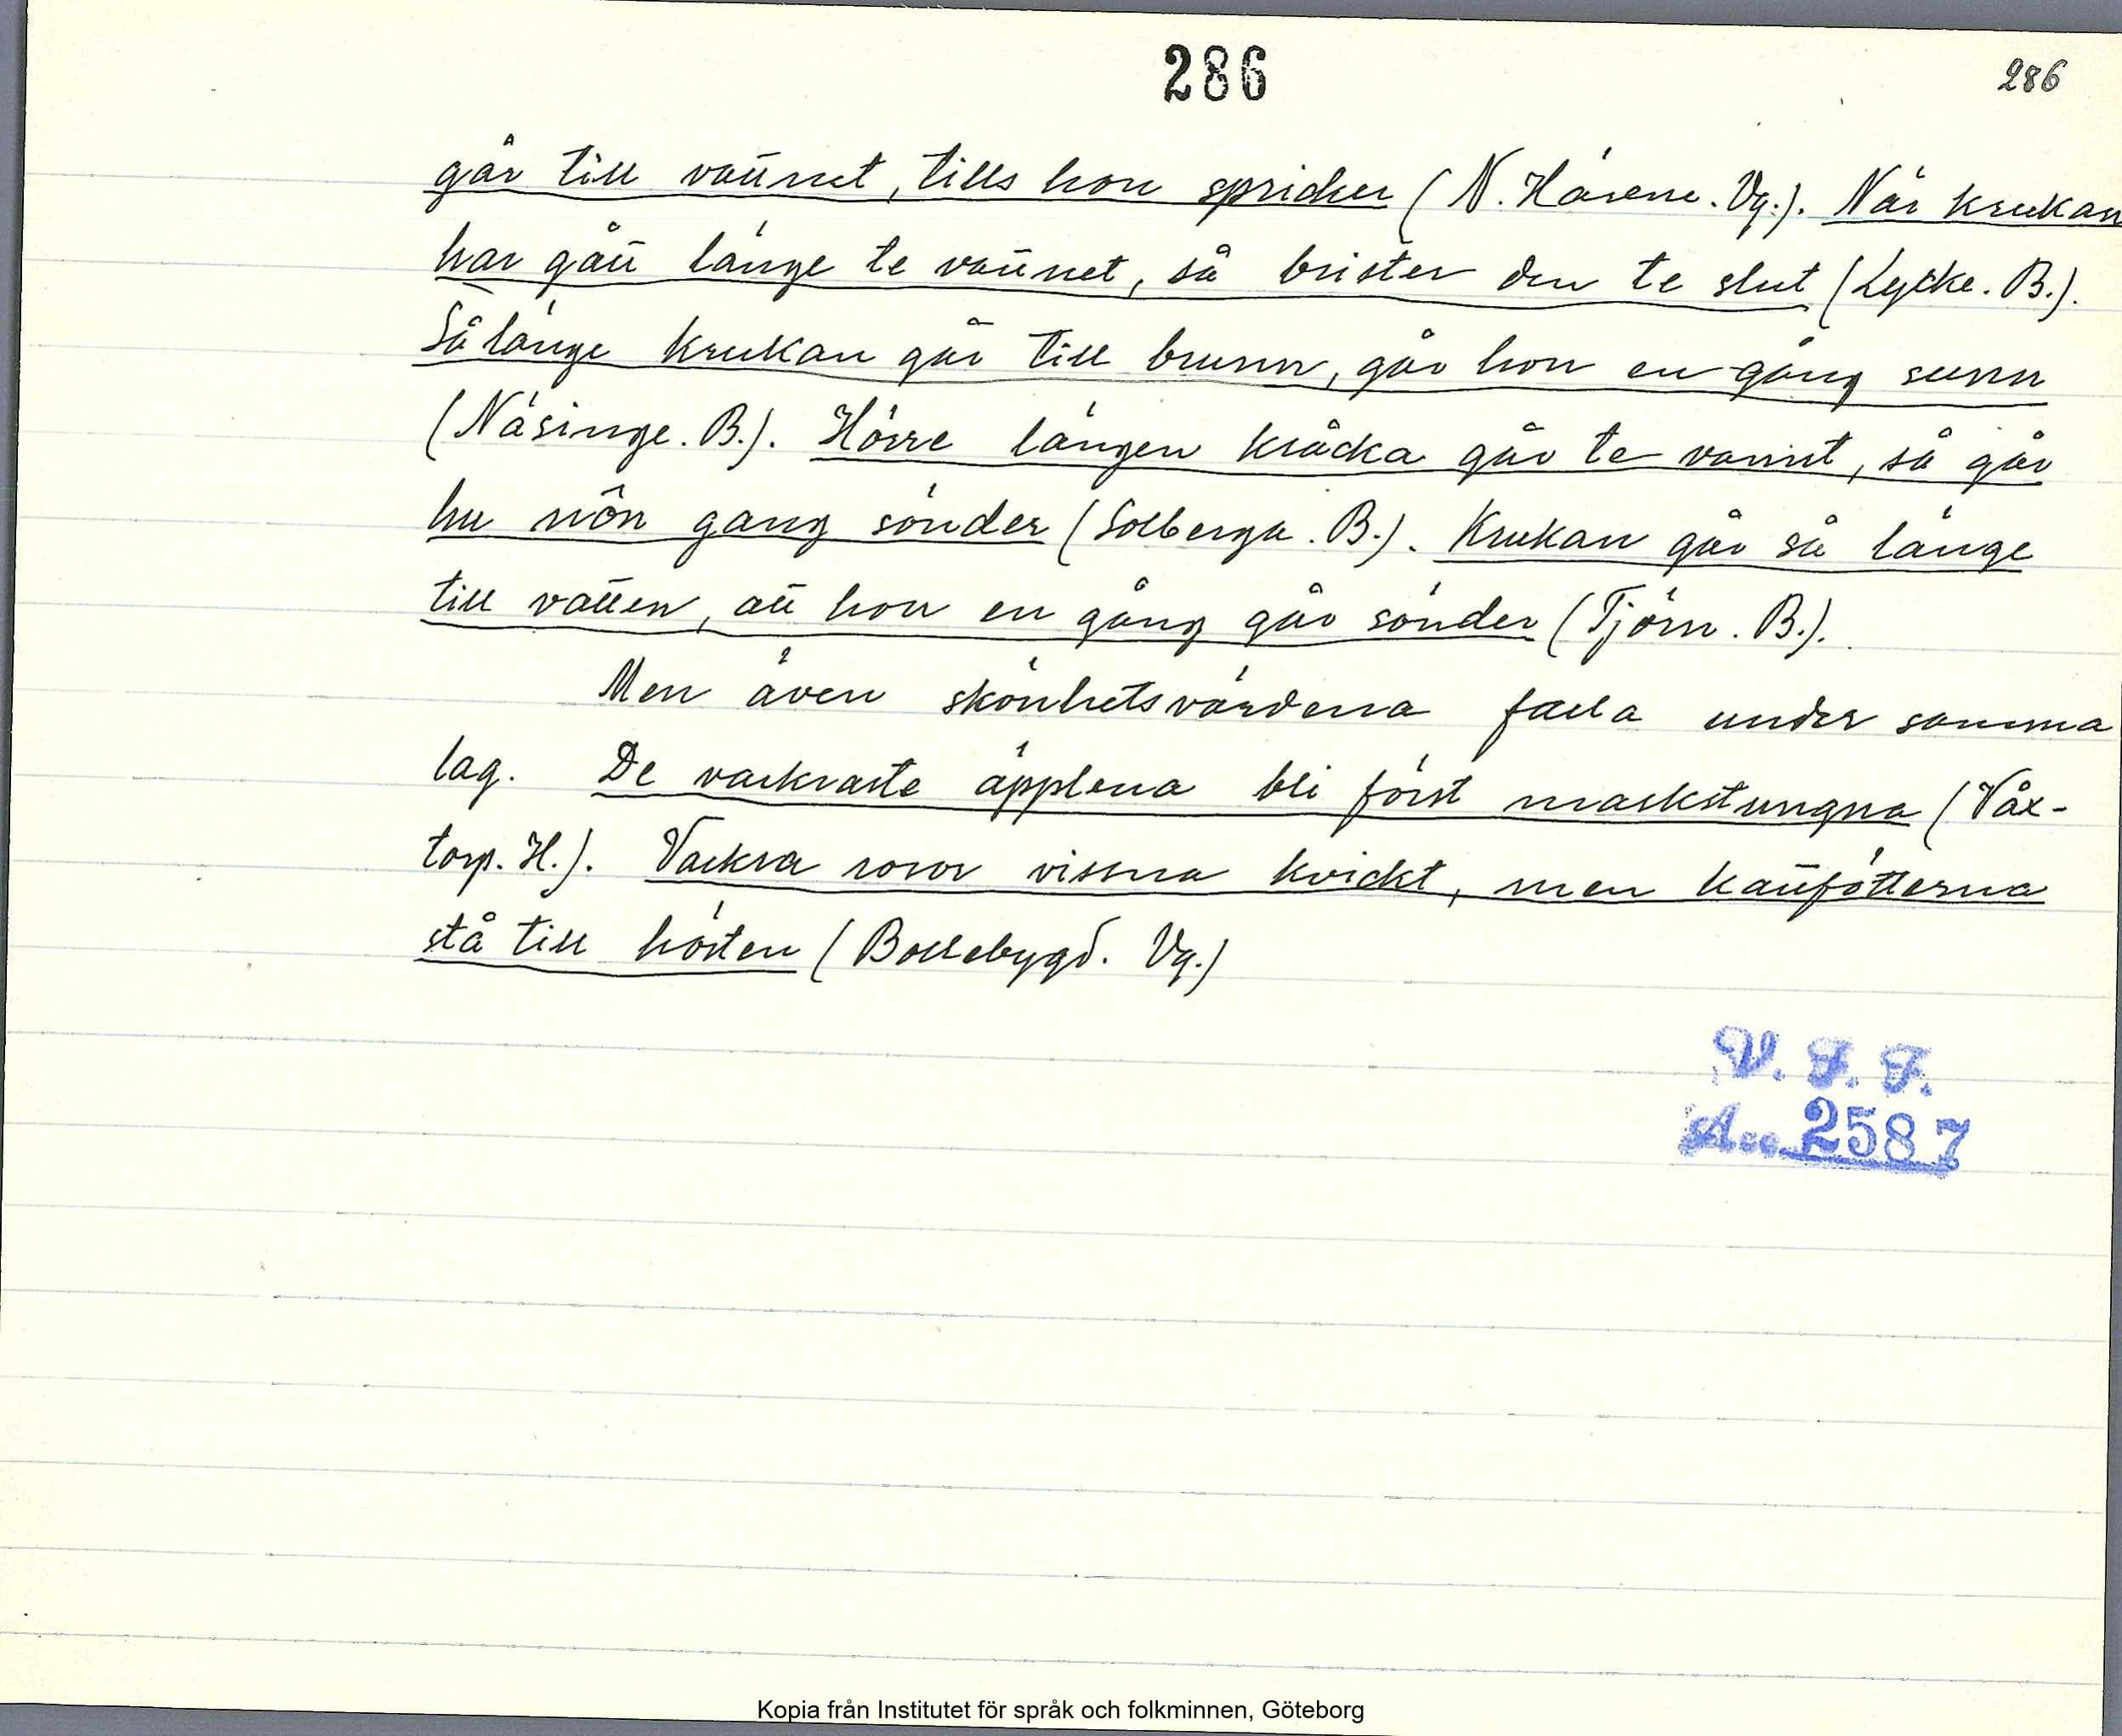 286
286
går till vattnet, tills hon spricker (N. Härene. Vg.). När krukan
har gått länge te vattnet, så brister den te slut (Lycke. B.).
Så länge krukan går till brunn, går hon en gång sunn
(Näsinge. B.). Hörre längen kråcka går te vannt, så går
hu nôn gang sönder (Solberga. B.). Krukan går så länge
till vatten, att hon en gång går sönder (Tjörn. B.).
Men även skönhetsvärdena falla under samma
lag. De vackraste äpplena bli först maskstungna (Våx-
torp. H.). Vackra rosor vissna kvickt, men kattfötterna
stå till hösten (Bollebygd. Vg.)
V. F. F.
Acc. 2587
Kopia från Institutet för språk och folkminnen, Göteborg